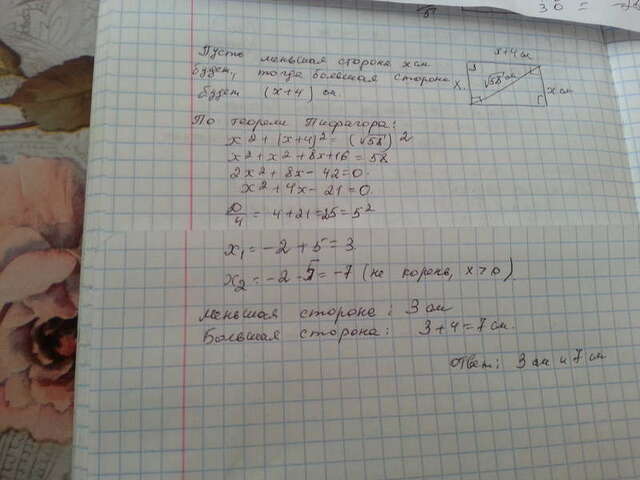 3 0 =
x+4 см
Пусть меньшая сторона x см
будет, тогда большая сторона
будет (x+4) см.
x
√58 см
x см
По теореме Пифагора:
x²+(x+4)²=(√58)²
x²+x²+8x+16=58
2x²+8x-42=0
x²+4x-21=0
D/4 = 4+21=25=5²
x₁=-2+5=3
x₂=-2-5=-7 (не корень, x>0).
Меньшая сторона: 3 см
Большая сторона: 3+4=7 см.
Ответ: 3 см и 7 см